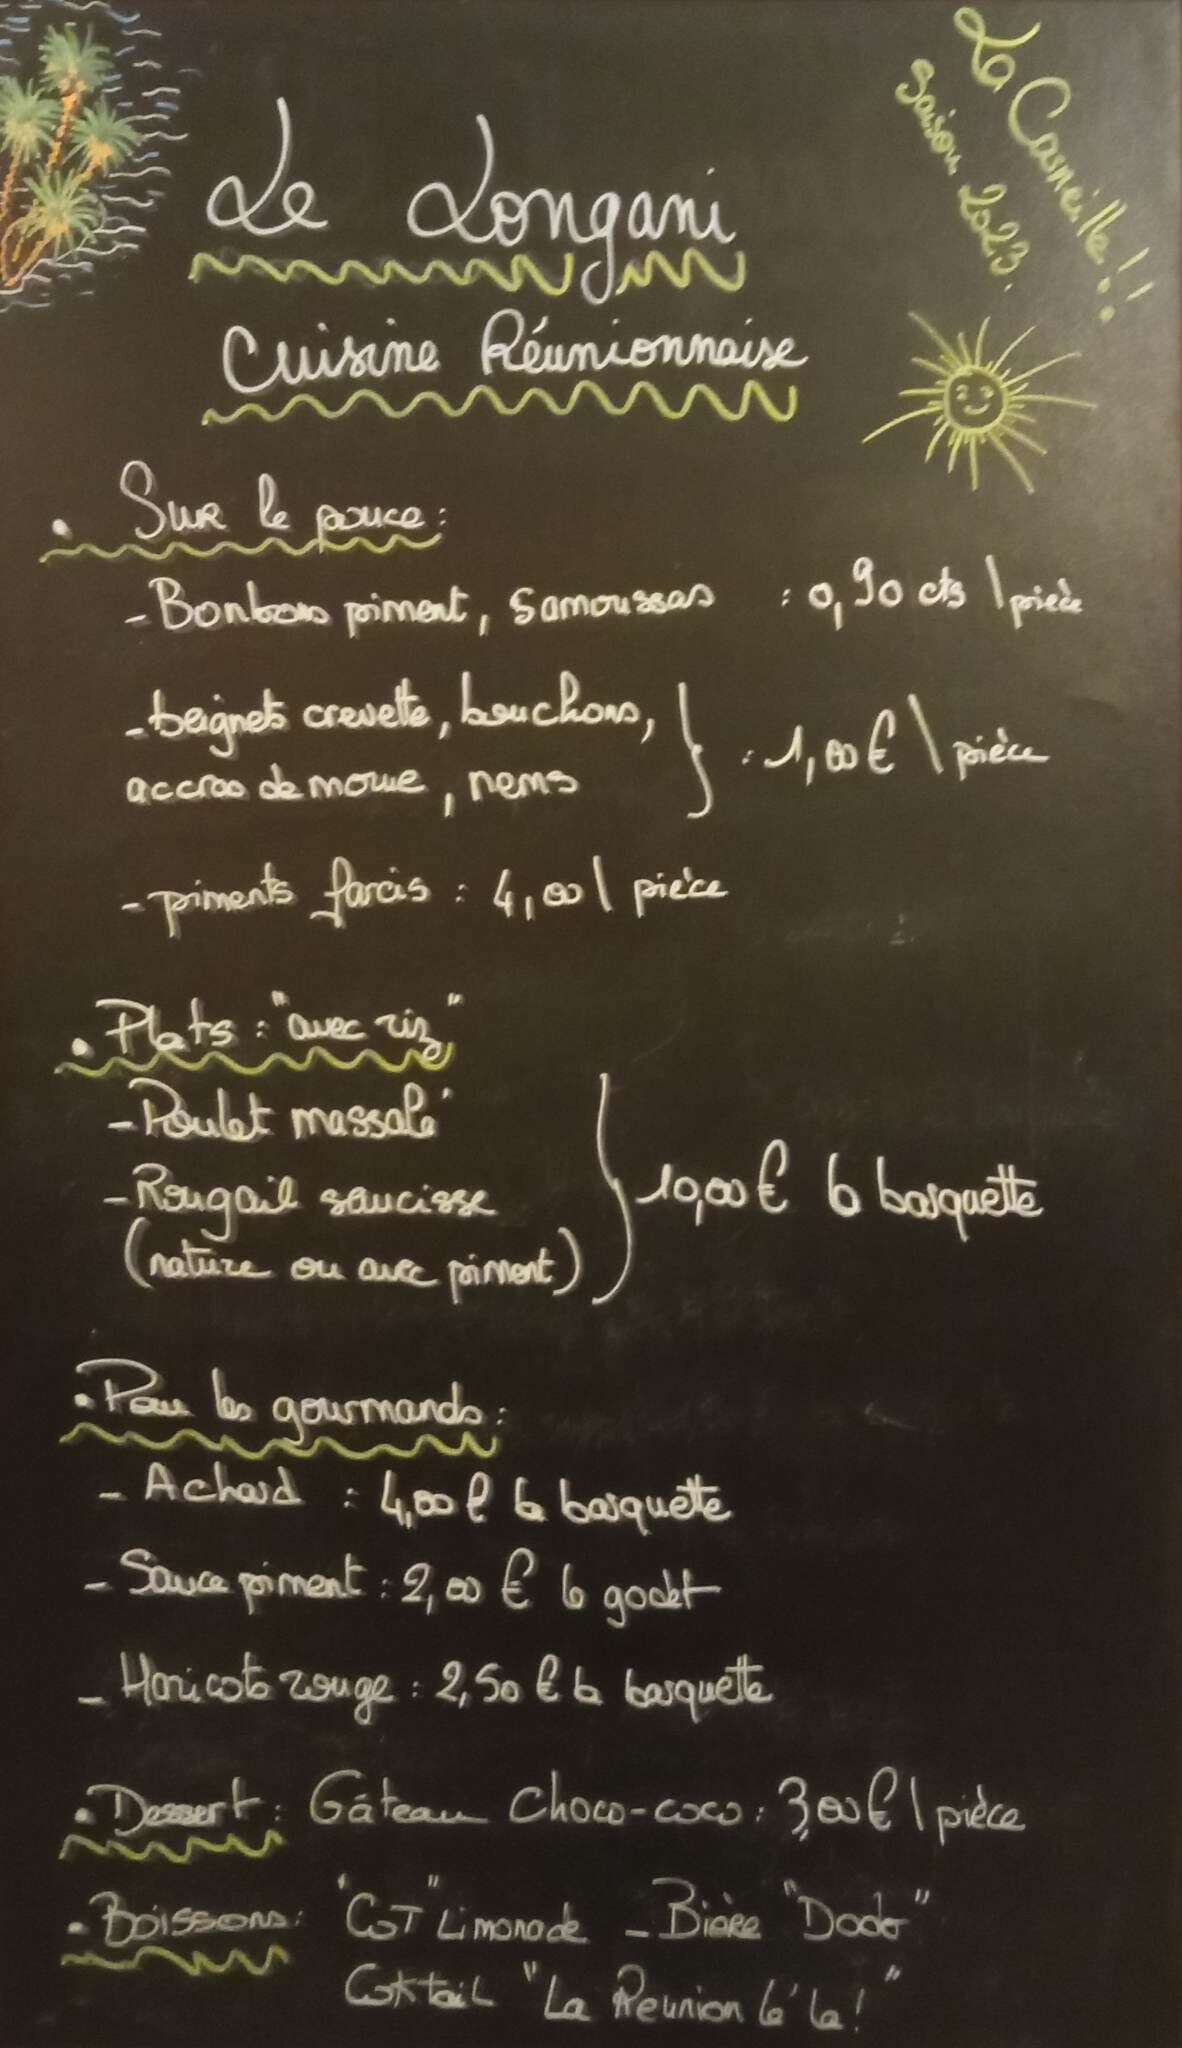 La Corneille!!
Saison 2023.
Le Longani
Cuisine Réunionnaise
• Sur le pouce:
- Bonbons piment, samoussas : 0,90 cts \ pièce
- beignets crevette, bouchons,
accras de morue, nems } : 1,00 € \ pièce
- piments farcis : 4,00 \ pièce
• Plats : "avec riz"
- Poulet massalé
- Rougail saucisse
(nature ou avec piment) } 10,00 € la barquette
• Pour les gourmands:
- Achard : 4,00 € la barquette
- Sauce piment : 2,00 € le godet
- Haricots rouge : 2,50 € la barquette
• Dessert : Gâteau choco-coco : 3,00 € \ pièce
• Boissons : "COT" Limonade - Bière "Dodo"
Coktail "La Réunion lé la!"